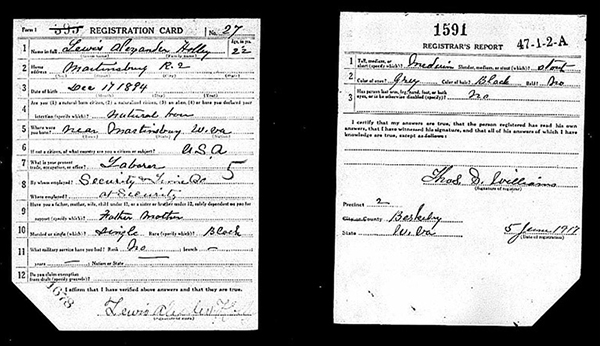 Form 1 595 REGISTRATION CARD No. 27
1 Name in full Lewis Alexander Holly Age, in yrs. 22
2 Home address Martinsburg R. 2
3 Date of birth Dec 17 1894
4 Are you (1) a natural born citizen, (2) a naturalized citizen, (3) an alien, (4) or have you declared your
intention (specify which)? Natural born
5 Where were you born? near Martinsburg W. Va U.S.A
6 If not a citizen, of what country are you a citizen or subject?
7 What is your present trade, occupation, or office? Laborer 5
8 By whom employed? Security Lime Co
Where employed? at Security
9 Have you a father, mother, wife, child under 12, or a sister or brother under 12, solely dependent on you for
support (specify which)? Father Mother
10 Married or single (which)? Single Race (specify which)? Black
11 What military service have you had? Rank No ; branch —
years — ; Nation or State —
12 Do you claim exemption from draft (specify grounds)?
I affirm that I have verified above answers and that they are true.
1678
Lewis Alexander Holly
1591
REGISTRAR'S REPORT 47-1-2-A
1 Tall, medium, or short (specify which)? medium Slender, medium, or stout (which)? stout
2 Color of eyes? Grey Color of hair? Black Bald? No
3 Has person lost arm, leg, hand, foot, or both eyes, or is he otherwise disabled (specify)? No
I certify that my answers are true, that the person registered has read his own
answers, that I have witnessed his signature, and that all of his answers of which I have
knowledge are true, except as follows:
Thos. D. Williams
(Signature of registrar)
Precinct 2
City or County Berkeley
State W. Va 5 June 1917
(Date of registration)